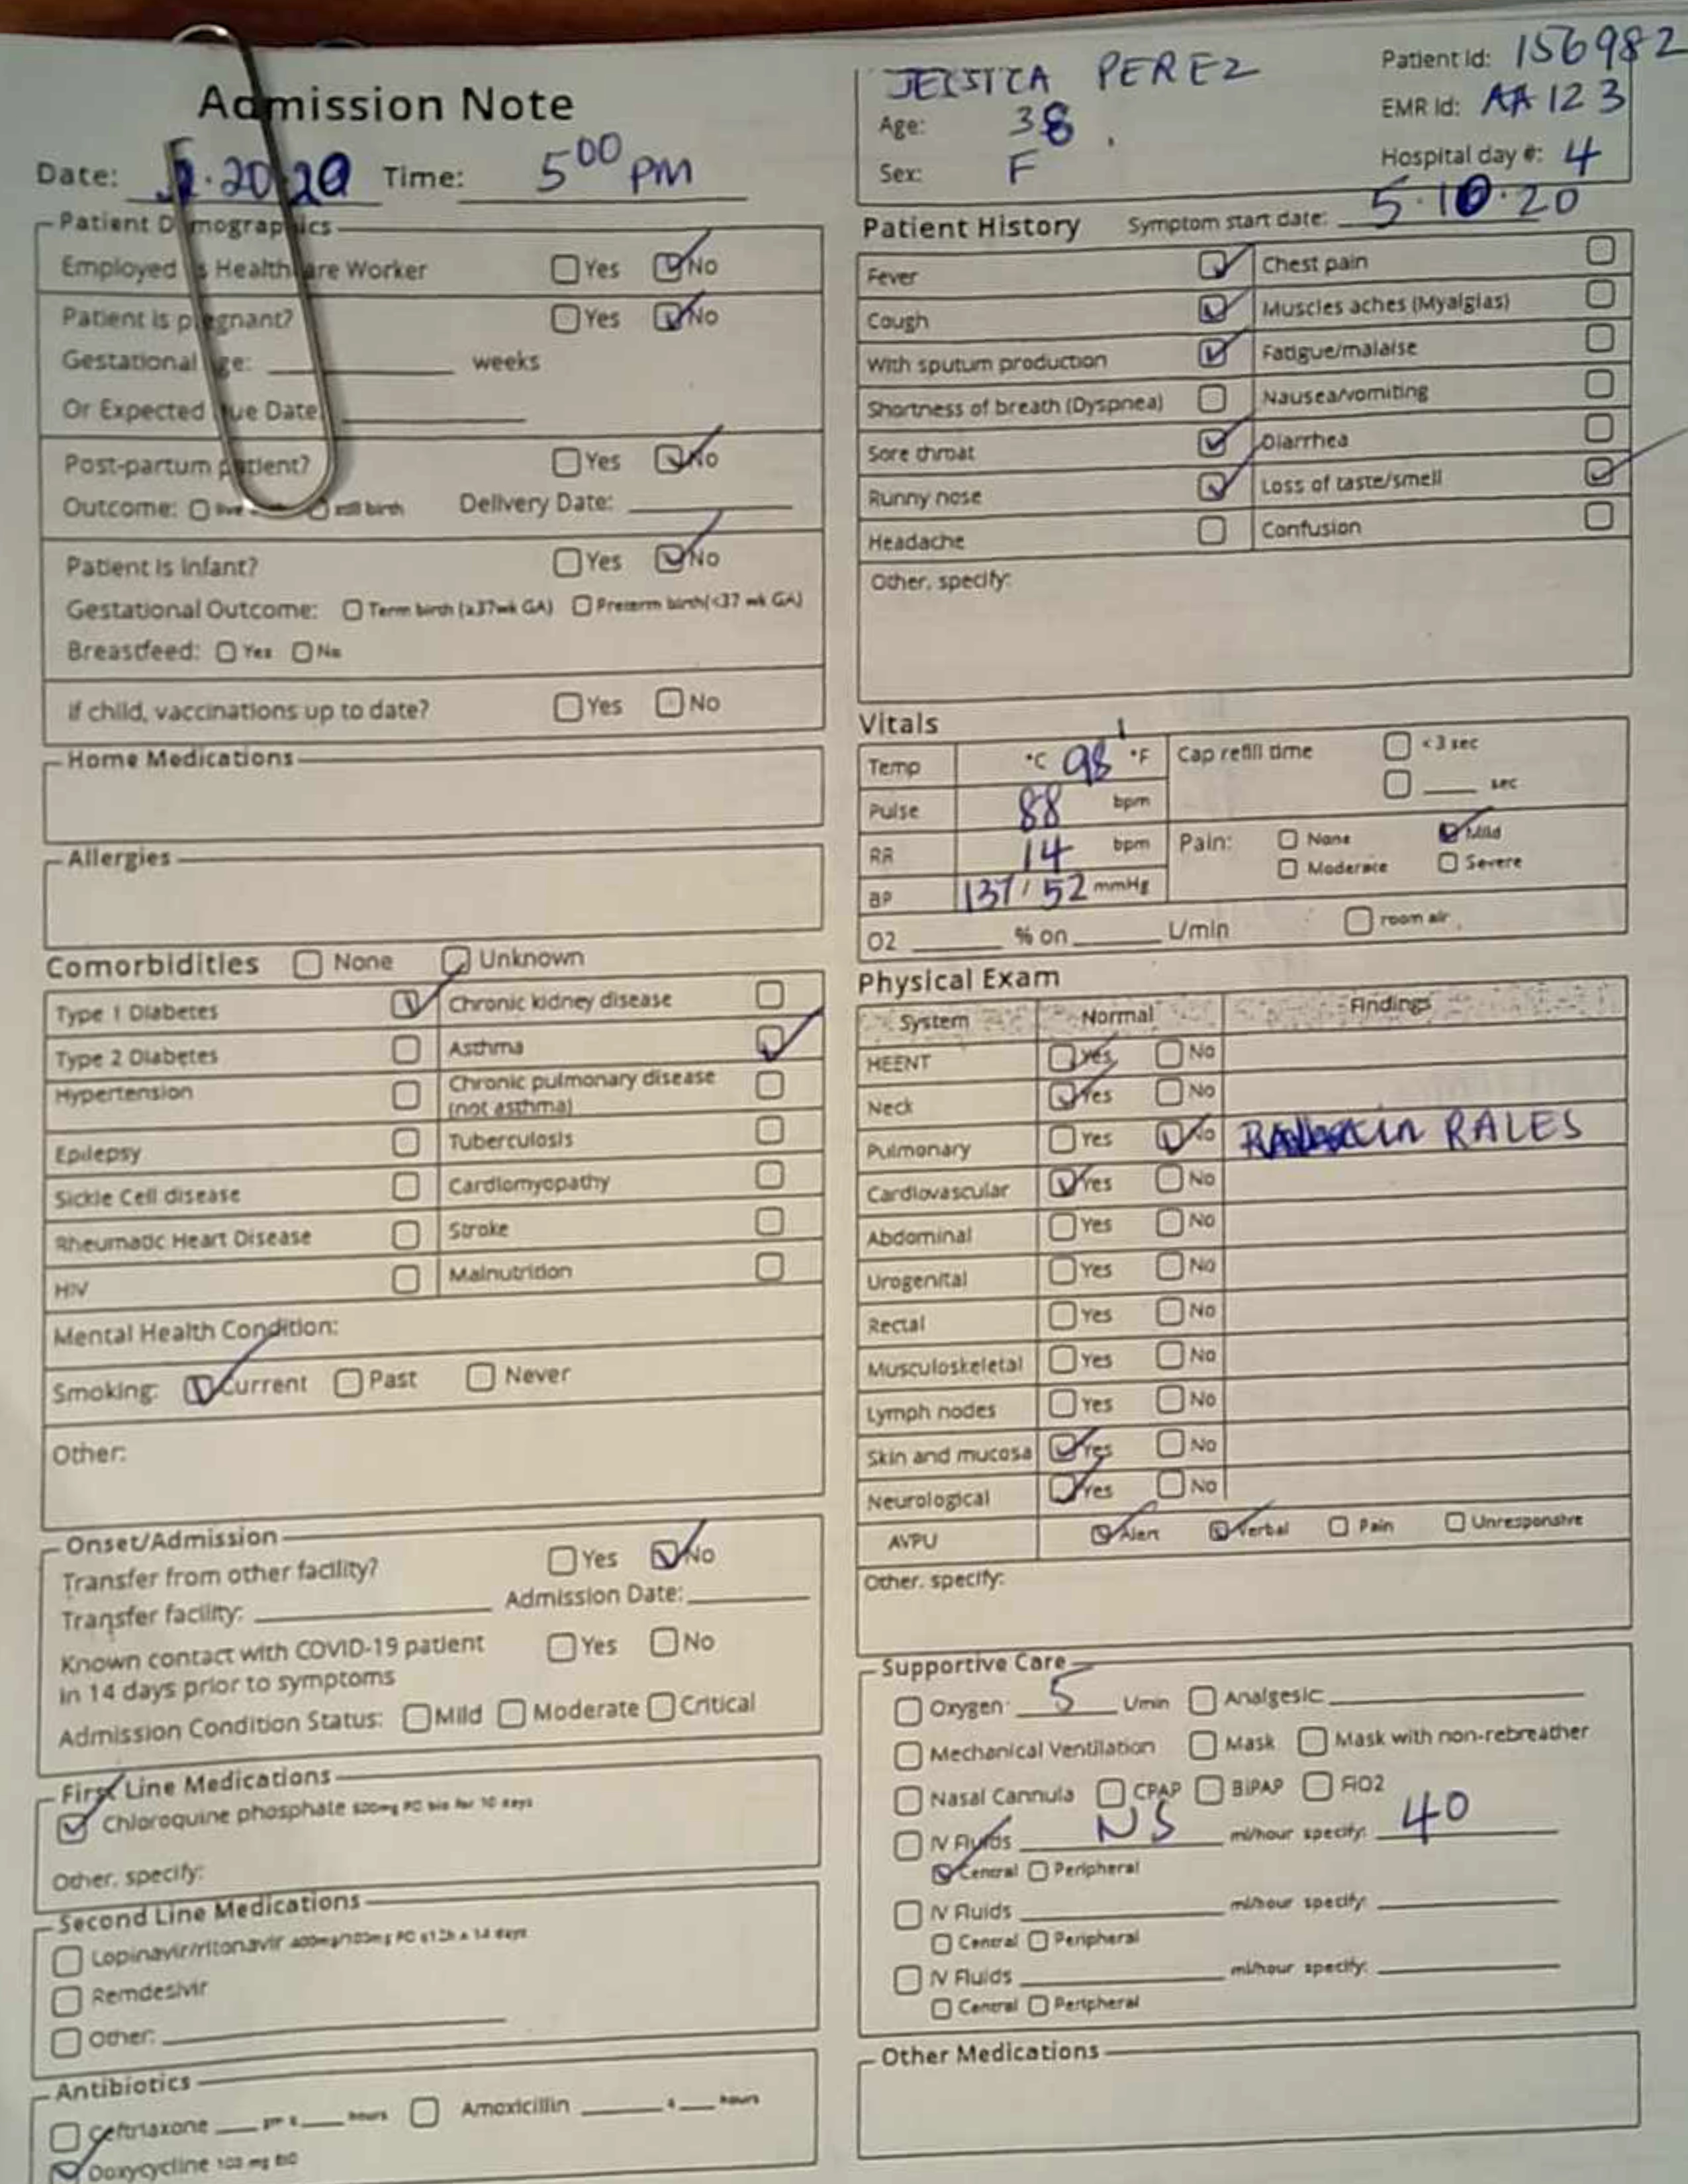 Admission Note
Date: 20.20 Time: 5 00 PM
Patient Demographics
Employed as Healthcare Worker Yes No
Patient is pregnant? Yes No
Gestational age: weeks
Or Expected Due Date
Post-partum patient? Yes No
Outcome: live still birth Delivery Date:
Patient is Infant? Yes No
Gestational Outcome: Term birth (≥37wk GA) Preterm birth(<37 wk GA)
Breastfeed: Yes No
If child, vaccinations up to date? Yes No
Home Medications
Allergies
Comorbidities None Unknown
Type 1 Diabetes Chronic kidney disease
Type 2 Diabetes Asthma
Hypertension Chronic pulmonary disease
(not asthma)
Epilepsy Tuberculosis
Sickle Cell disease Cardiomyopathy
Rheumatic Heart Disease Stroke
HIV Malnutrition
Mental Health Condition:
Smoking: Current Past Never
Other:
Onset/Admission
Transfer from other facility? Yes No
Transfer facility: Admission Date:
Known contact with COVID-19 patient Yes No
in 14 days prior to symptoms
Admission Condition Status: Mild Moderate Critical
First Line Medications
Chloroquine phosphate 500mg PO bid for 10 days
Other, specify:
Second Line Medications
Lopinavir/ritonavir 400mg/100mg PO q12h x 14 days
Remdesivir
Other:
Antibiotics
Ceftriaxone hours Amoxicillin hours
Doxycycline 100 mg BID
JESSICA PEREZ
Age: 38
Sex: F
Patient Id: 156982
EMR Id: AA123
Hospital day #: 4
Patient History Symptom start date: 5.10.20
Fever Chest pain
Cough Muscles aches (Myalgias)
With sputum production Fatigue/malaise
Shortness of breath (Dyspnea) Nausea/vomiting
Sore throat Diarrhea
Runny nose Loss of taste/smell
Headache Confusion
Other, specify:
Vitals
Temp °C 98 °F Cap refill time <3 sec
sec
Pulse 88 bpm
RR 14 bpm Pain: None Mild
Moderate Severe
BP 137/52 mmHg
O2 % on L/min room air
Physical Exam
System Normal Findings
HEENT Yes No
Neck Yes No
Pulmonary Yes No RALES
Cardiovascular Yes No
Abdominal Yes No
Urogenital Yes No
Rectal Yes No
Musculoskeletal Yes No
Lymph nodes Yes No
Skin and mucosa Yes No
Neurological Yes No
AVPU Alert Verbal Pain Unresponsive
Other, specify:
Supportive Care
Oxygen: 5 L/min Analgesic:
Mechanical Ventilation Mask Mask with non-rebreather
Nasal Cannula CPAP BiPAP FiO2
IV Fluids NS ml/hour specify: 40
Central Peripheral
IV Fluids ml/hour specify:
Central Peripheral
IV Fluids ml/hour specify:
Central Peripheral
Other Medications